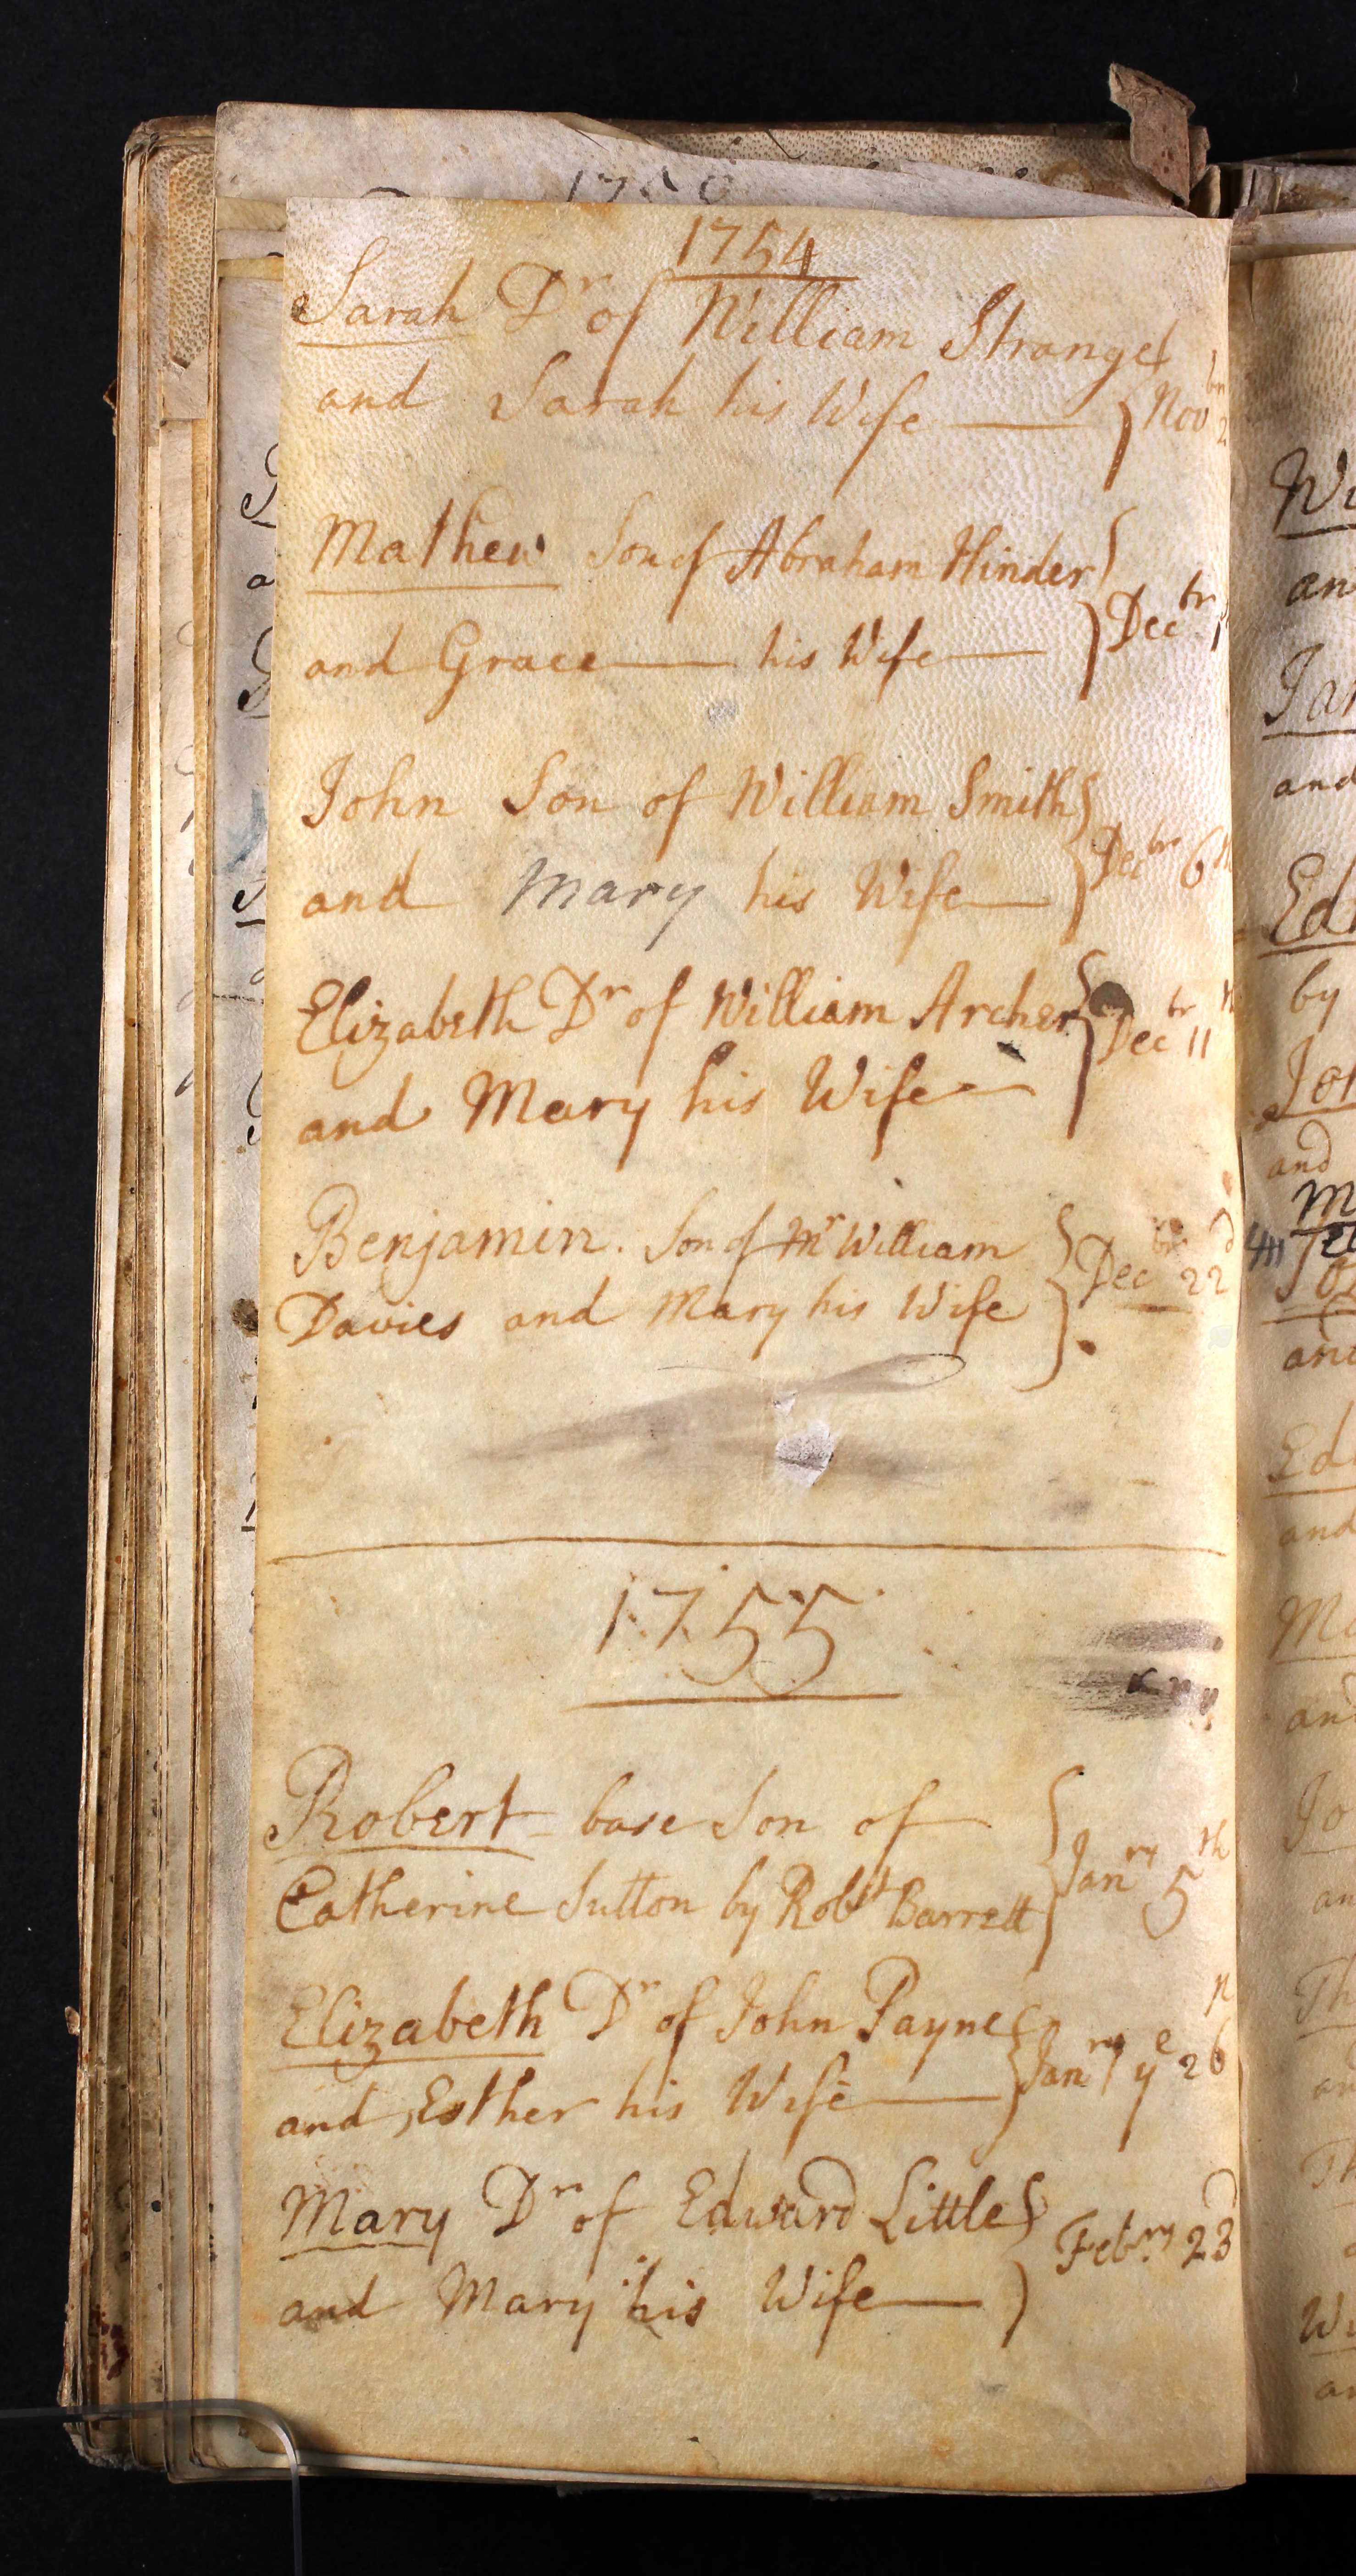 1754
Sarah Dr of William Strange
and Sarah his Wife — Novbr 2
Mathew Son of Abraham Hinder
and Grace — his Wife — Decbr 1
John Son of William Smith
and Mary his Wife — Decbr 6th
Elizabeth Dr of William Archer
and Mary his Wife — Decbr 11th
Benjamin. Son of Mr William
Davies and Mary his Wife Decbr 22d
1755
Robert base Son of
Catherine Sutton by Robt Barrett Janry 5th
Elizabeth Dr of John Payne
and Esther his Wife — Janry ye 26th
Mary Dr of Edward Little
and Mary his Wife — Febry 23d